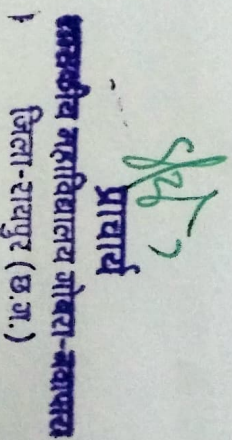 प्राचार्य
शासकीय महाविद्यालय गोबरा-नवापारा
जिला-रायपुर (छ.ग.)